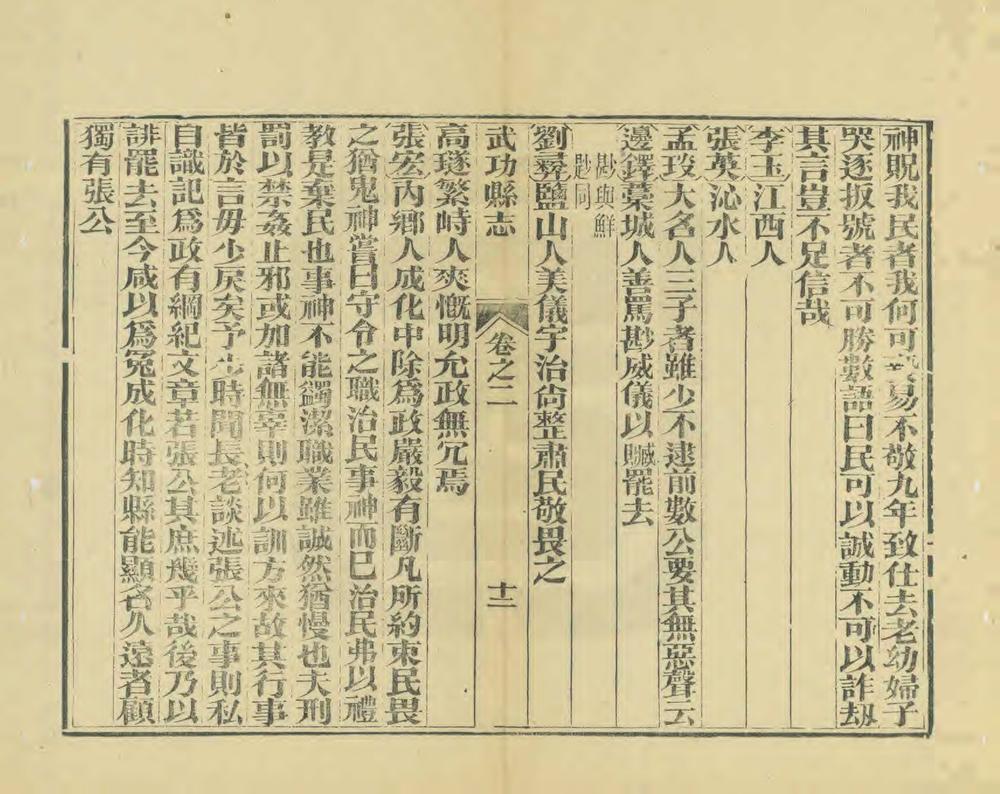 神貺我民者我何可易不敬九年致仕去老幼婦子
哭逐扳號者不可勝數語曰民可以誠動不可以詐刼
其言豈不足信哉
李玉江西人
張英沁水人
孟玫大名人三子者雖少不逮前數公要其無惡聲云
邊鐸藁城人善罵尠威儀以贓罷去
尠與鮮
尟同
劉彞鹽山人美儀宇治尙整肅民敬畏之
武功縣志
卷之二
十二
高璲繁峙人爽慨明允政無冗焉
張宏內鄉人成化中除爲政嚴毅有斷凡所約束民畏
之猶鬼神嘗曰守令之職治民事神而已治民弗以禮
教是棄民也事神不能蠲潔職業雖誠然猶慢也夫刑
罰以禁姦止邪或加諸無辜則何以訓方來故其行事
皆於言毋少戾矣予少時聞長老談述張公之事則私
自識記爲政有綱紀文章若張公其庶幾乎哉後乃以
誹罷去至今咸以爲冤成化時知縣能顯名久遠者顧
獨有張公